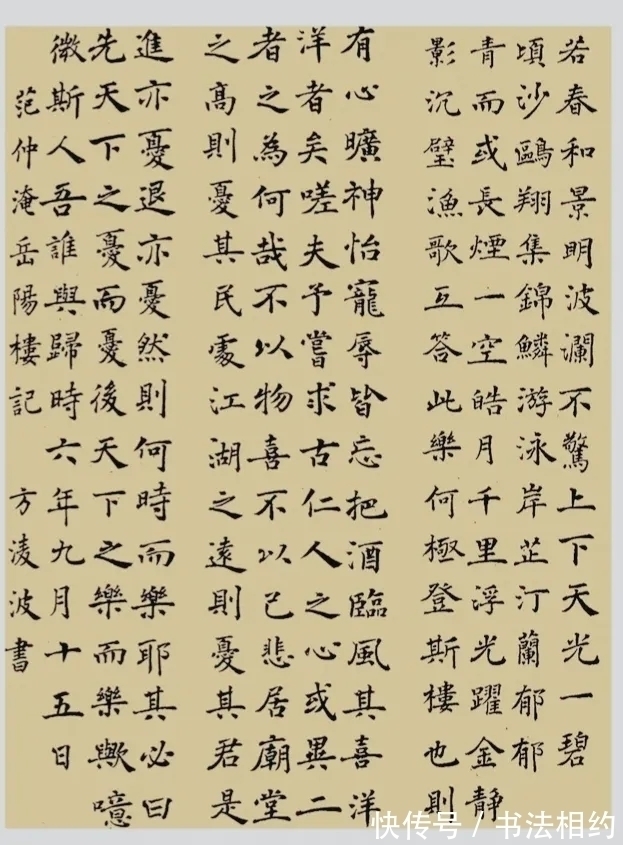 若春和景明波瀾不驚上下天光一碧
頃沙鷗翔集錦鱗游泳岸芷汀蘭郁郁
青而或長煙一空皓月千里浮光躍金靜
影沉璧漁歌互答此樂何極登斯樓也則
有心曠神怡寵辱皆忘把酒臨風其喜洋
洋者矣嗟夫予嘗求古仁人之心或異二
者之為何哉不以物喜不以己悲居廟堂
之高則憂其民處江湖之遠則憂其君是
進亦憂退亦憂然則何時而樂耶其必曰
先天下之憂而憂後天下之樂而樂歟噫
微斯人吾誰與歸時六年九月十五日
范仲淹岳陽樓記 方淩波書
快传号 / 书法相约